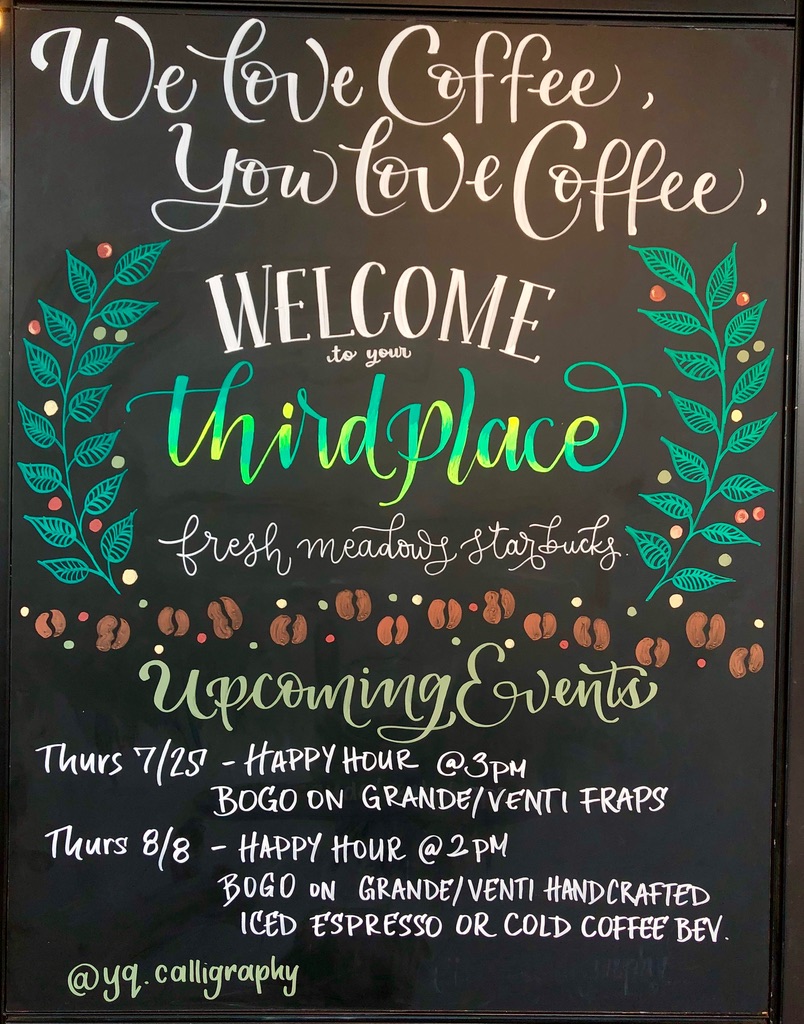 We love Coffee,
You love Coffee,
WELCOME
to your
third place
fresh meadows starbucks.
Upcoming Events
Thurs 7/25 - HAPPY HOUR @3PM
BOGO ON GRANDE/VENTI FRAPS
Thurs 8/8 - HAPPY HOUR @2PM
BOGO ON GRANDE/VENTI HANDCRAFTED
ICED ESPRESSO OR COLD COFFEE BEV.
@yq.calligraphy